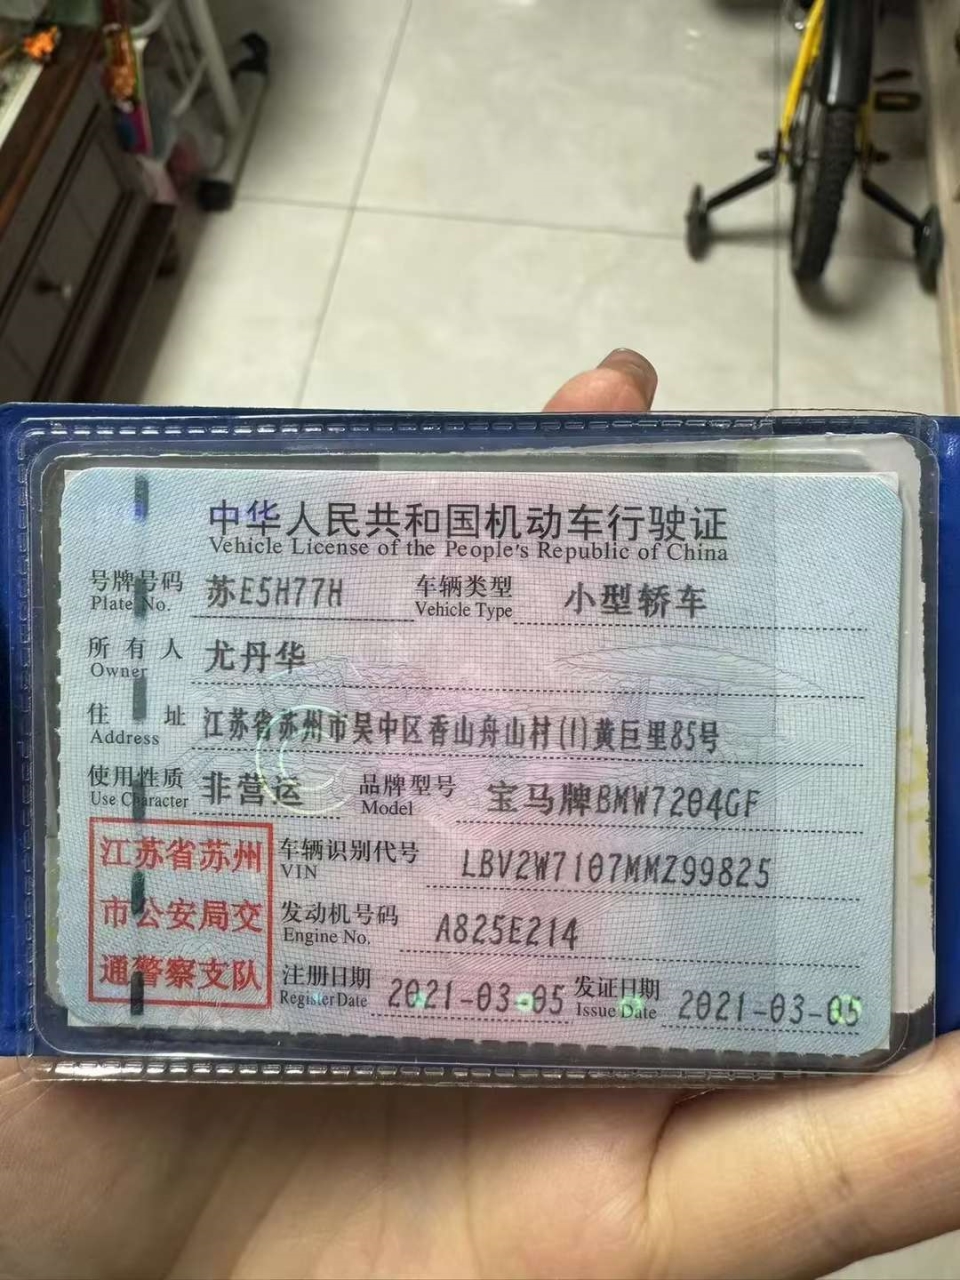 中华人民共和国机动车行驶证
Vehicle License of the People's Republic of China
号牌号码 苏E5H77H 车辆类型 小型轿车
Plate No. Vehicle Type
所有人 尤丹华
Owner
住址 江苏省苏州市吴中区香山舟山村(1)黄巨里85号
Address
使用性质 非营运 品牌型号 宝马牌BMW7204GF
Use Character Model
江苏省苏州 车辆识别代号 LBV2W7107MMZ99825
VIN
市公安局交 发动机号码 A825E214
Engine No.
通警察支队 注册日期 2021-03-05 发证日期 2021-03-05
Register Date Issue Date